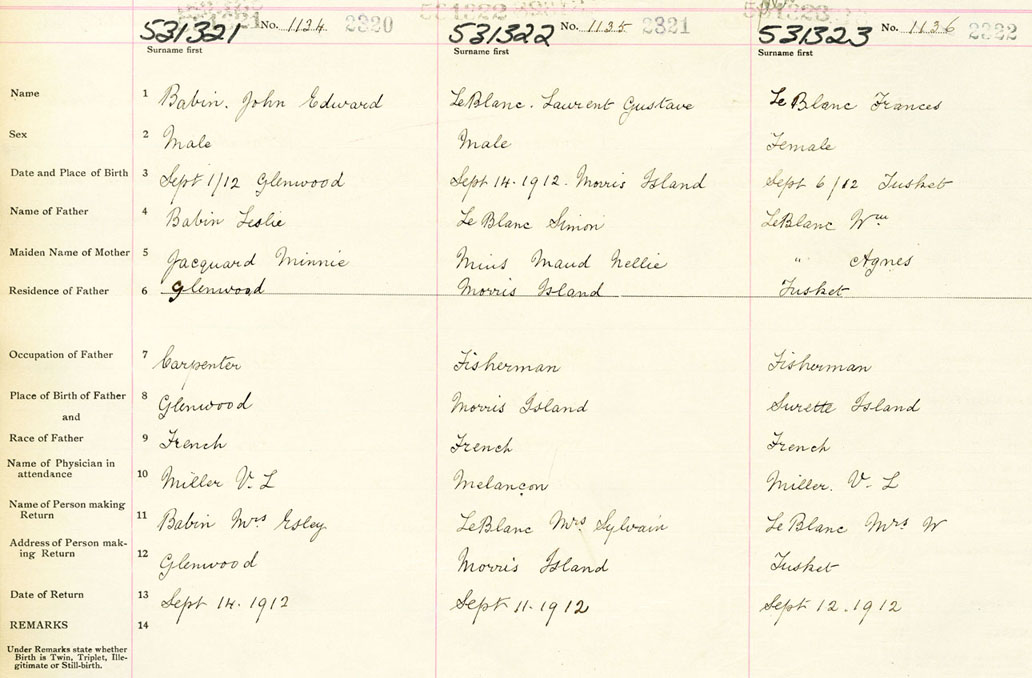 531321 No. 1134 2320 531322 No. 1135 2321 531323 No. 1136 2322
Surname first Surname first Surname first
Name 1 Babin. John Edward LeBlanc. Laurent Gustave LeBlanc Frances
Sex 2 Male Male Female
Date and Place of Birth 3 Sept 1/12 Glenwood Sept 14. 1912. Morris Island Sept 6/12 Tusket
Name of Father 4 Babin Leslie LeBlanc Simon LeBlanc Wm
Maiden Name of Mother 5 Jacquard Minnie Mius Maud Nellie " Agnes
Residence of Father 6 Glenwood Morris Island Tusket
Occupation of Father 7 Carpenter Fisherman Fisherman
Place of Birth of Father 8 Glenwood Morris Island Surette Island
and
Race of Father 9 French French French
Name of Physician in
attendance 10 Miller V. L Melançon Miller. V. L
Name of Person making
Return 11 Babin Mrs Esley LeBlanc Mrs Sylvain LeBlanc Mrs W
Address of Person mak-
ing Return 12 Glenwood Morris Island Tusket
Date of Return 13 Sept 14. 1912 Sept 11. 1912 Sept 12. 1912
REMARKS 14
Under Remarks state whether
Birth is Twin, Triplet, Ille-
gitimate or Still-birth.